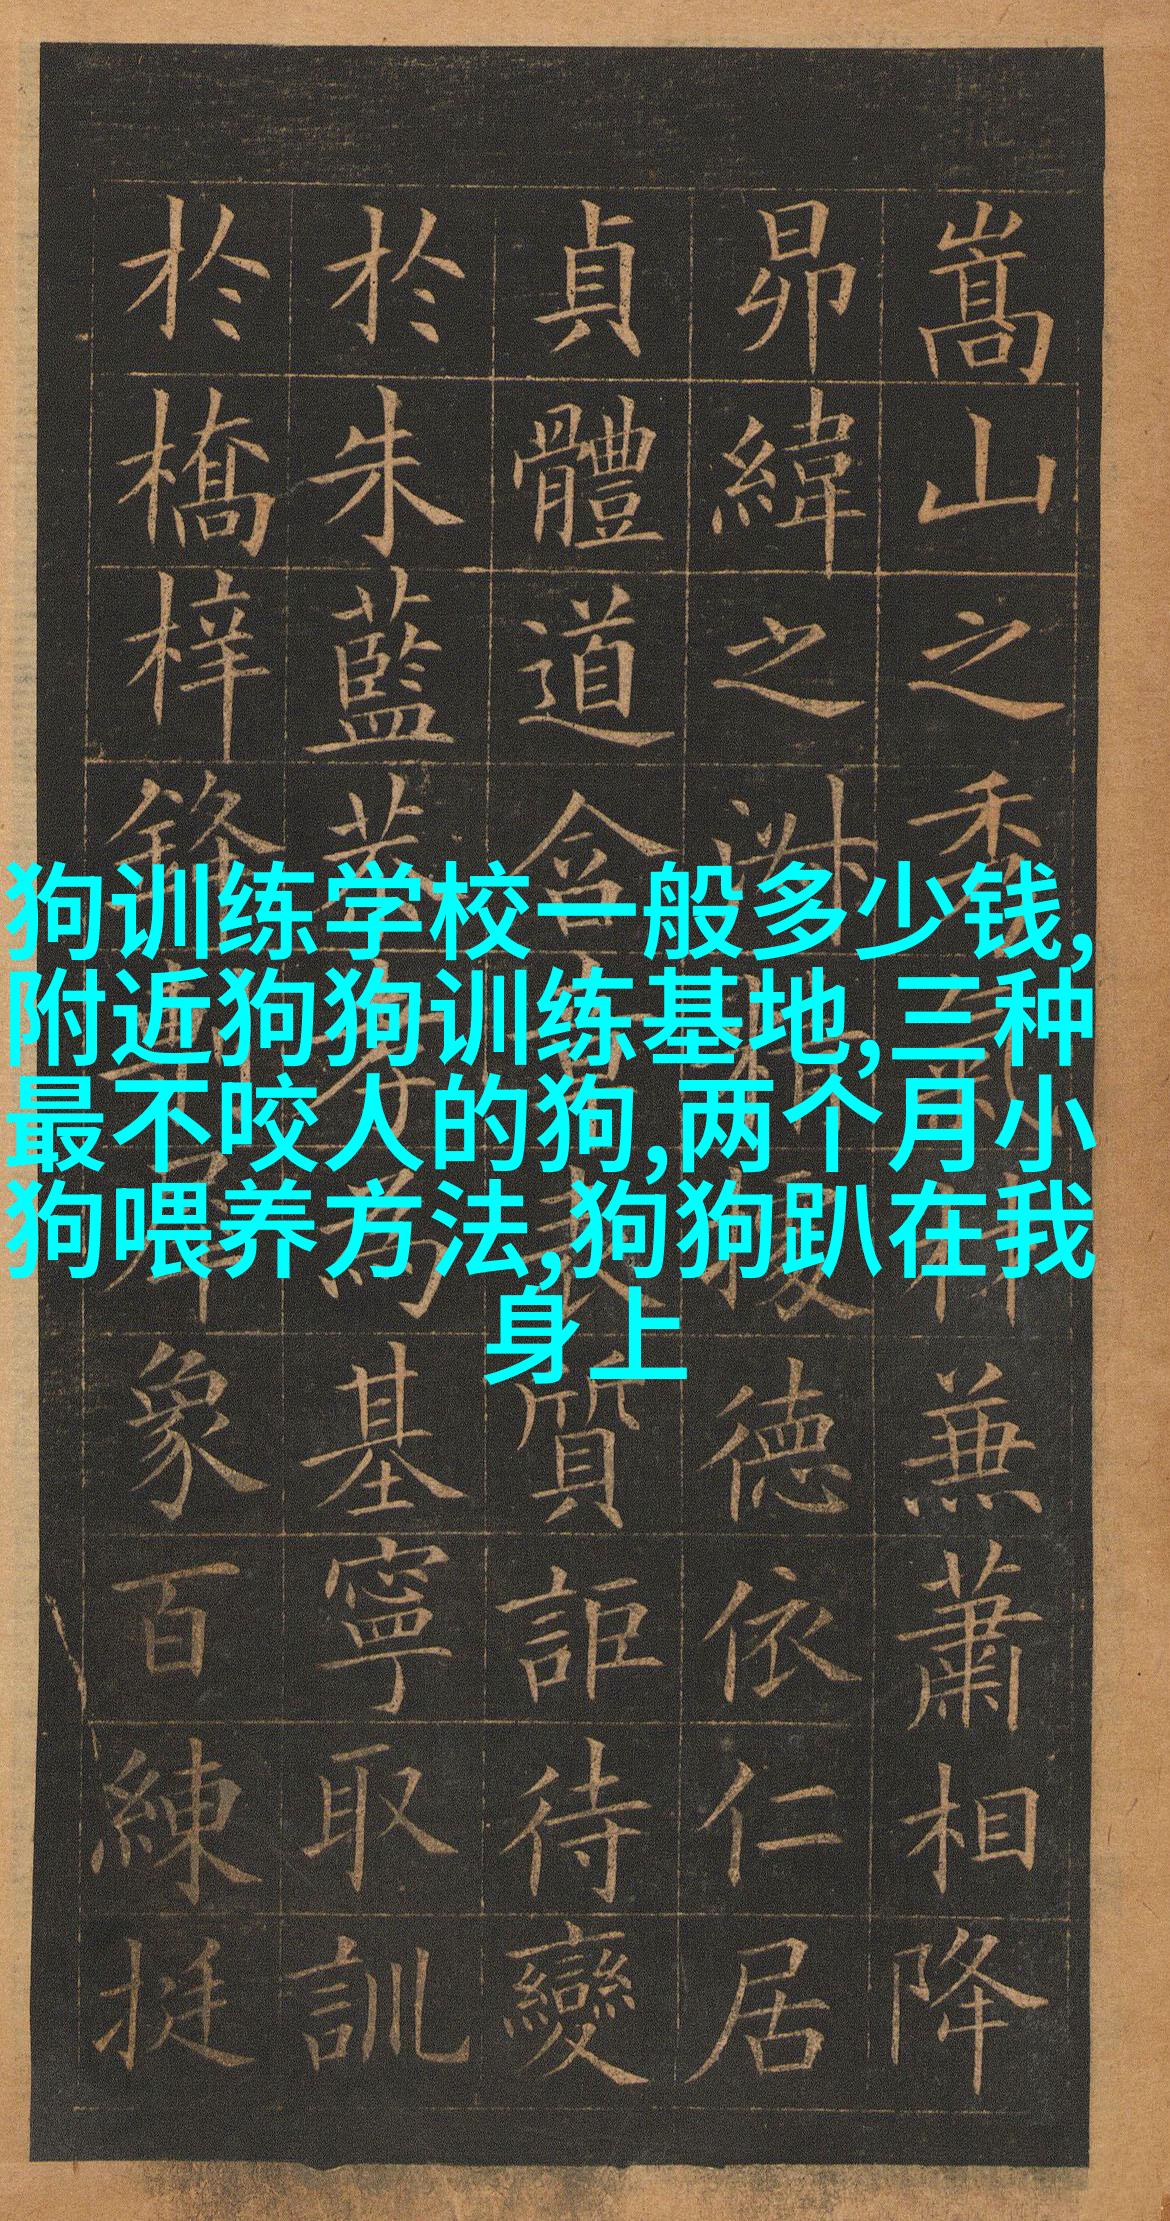 嵩山之秀氣材兼蕭相降
昴緯之淑精據德依仁居
貞體道含章表質詎待變
於朱藍恭孝為基寧取訓
於橋梓鋒剸犀象百練挺
狗训练学校一般多少钱,
附近狗狗训练基地,三种
最不咬人的狗,两个月小
狗喂养方法,狗狗趴在我
身上